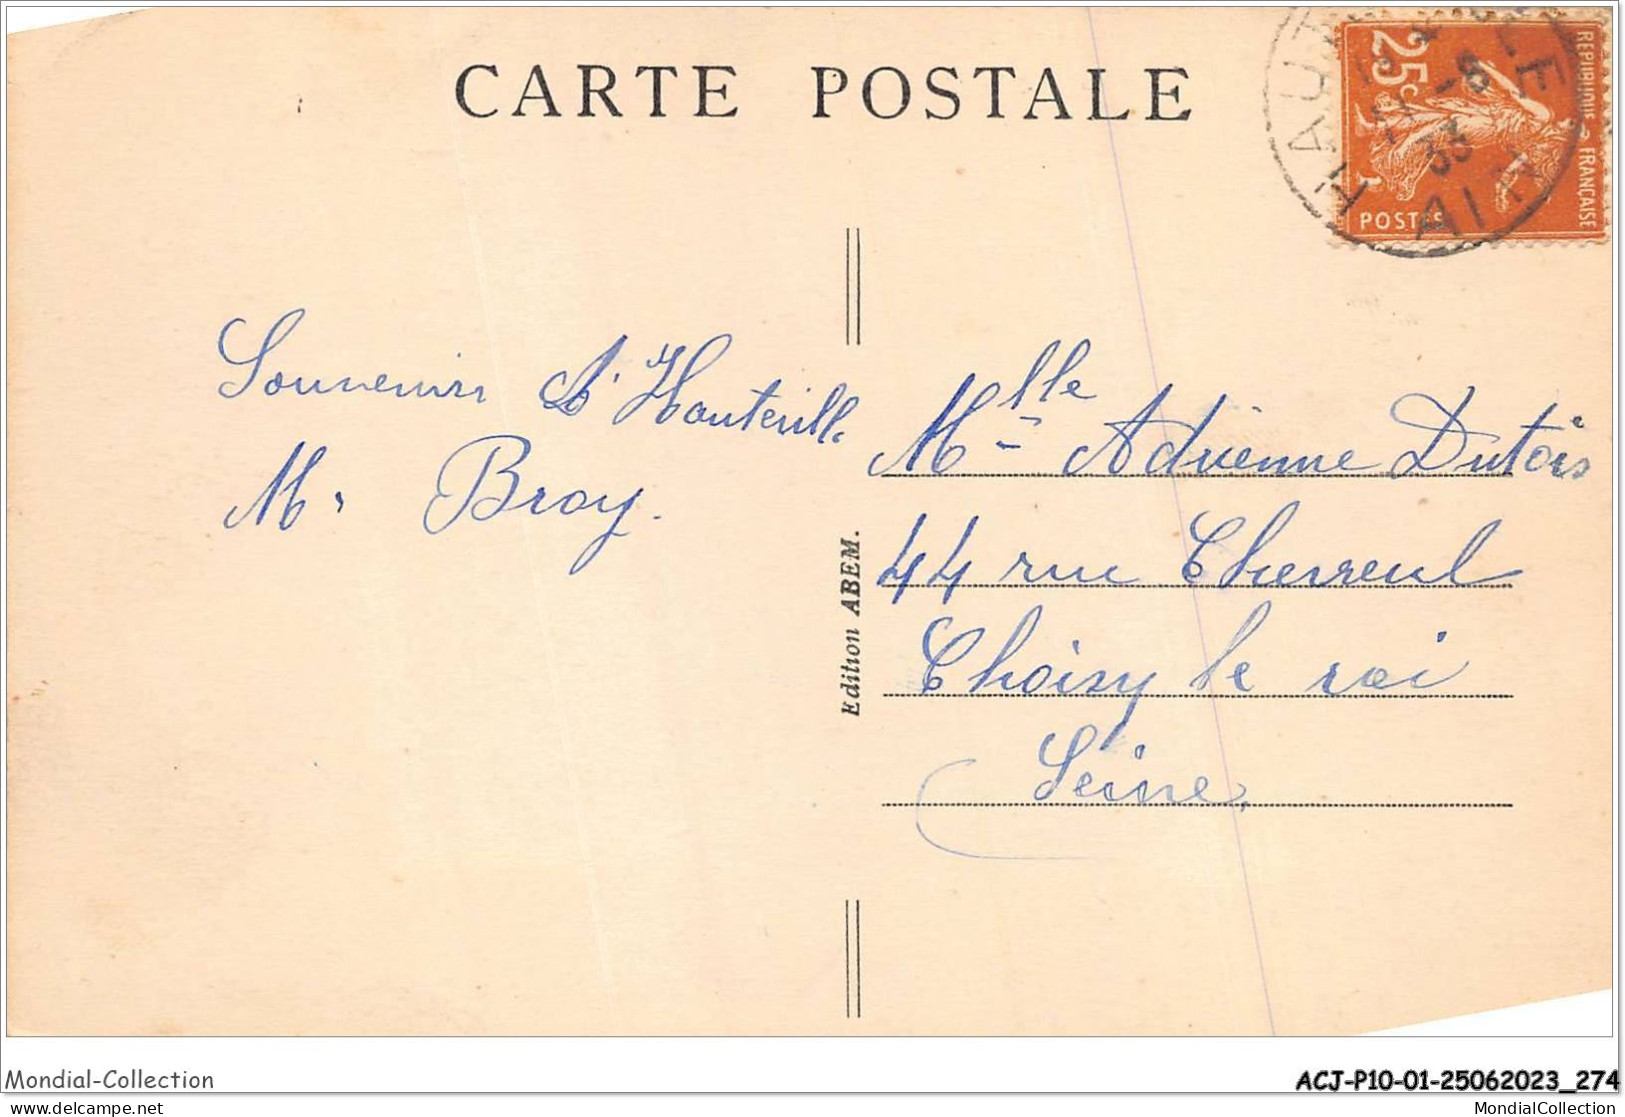 CARTE POSTALE
25c
REPUBLIQUE FRANÇAISE
POSTES
33
AIN
Souvenir d'Hauteville
M. Bray.
Mlle Adrienne Dutois
44 rue Chevreul
Choisy le roi
Seine
Edition ABEM.
Mondial-Collection
ACJ-P10-01-25062023_274
delcampe.net
MondialCollection